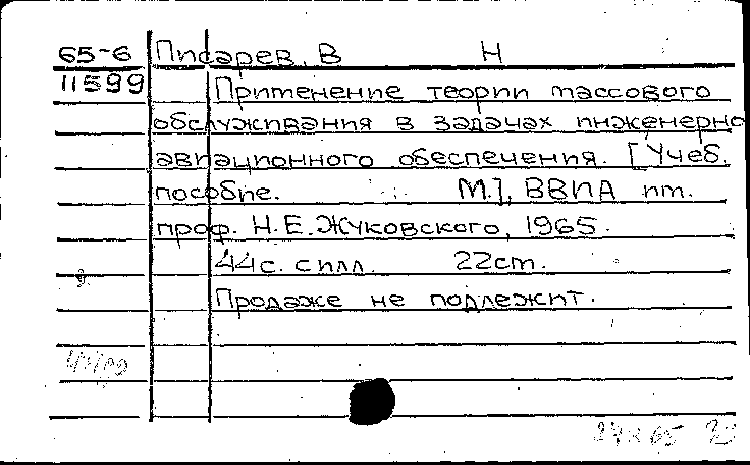 65-6 Писарев, В Н
11599 Применение теории массового
обслуживания в задачах инженерно
авиационного обеспечения. [Учеб.
пособие. М.], ВВИА им.
проф. Н.Е.Жуковского, 1965.
44с. с илл. 22см.
Продаже не подлежит.